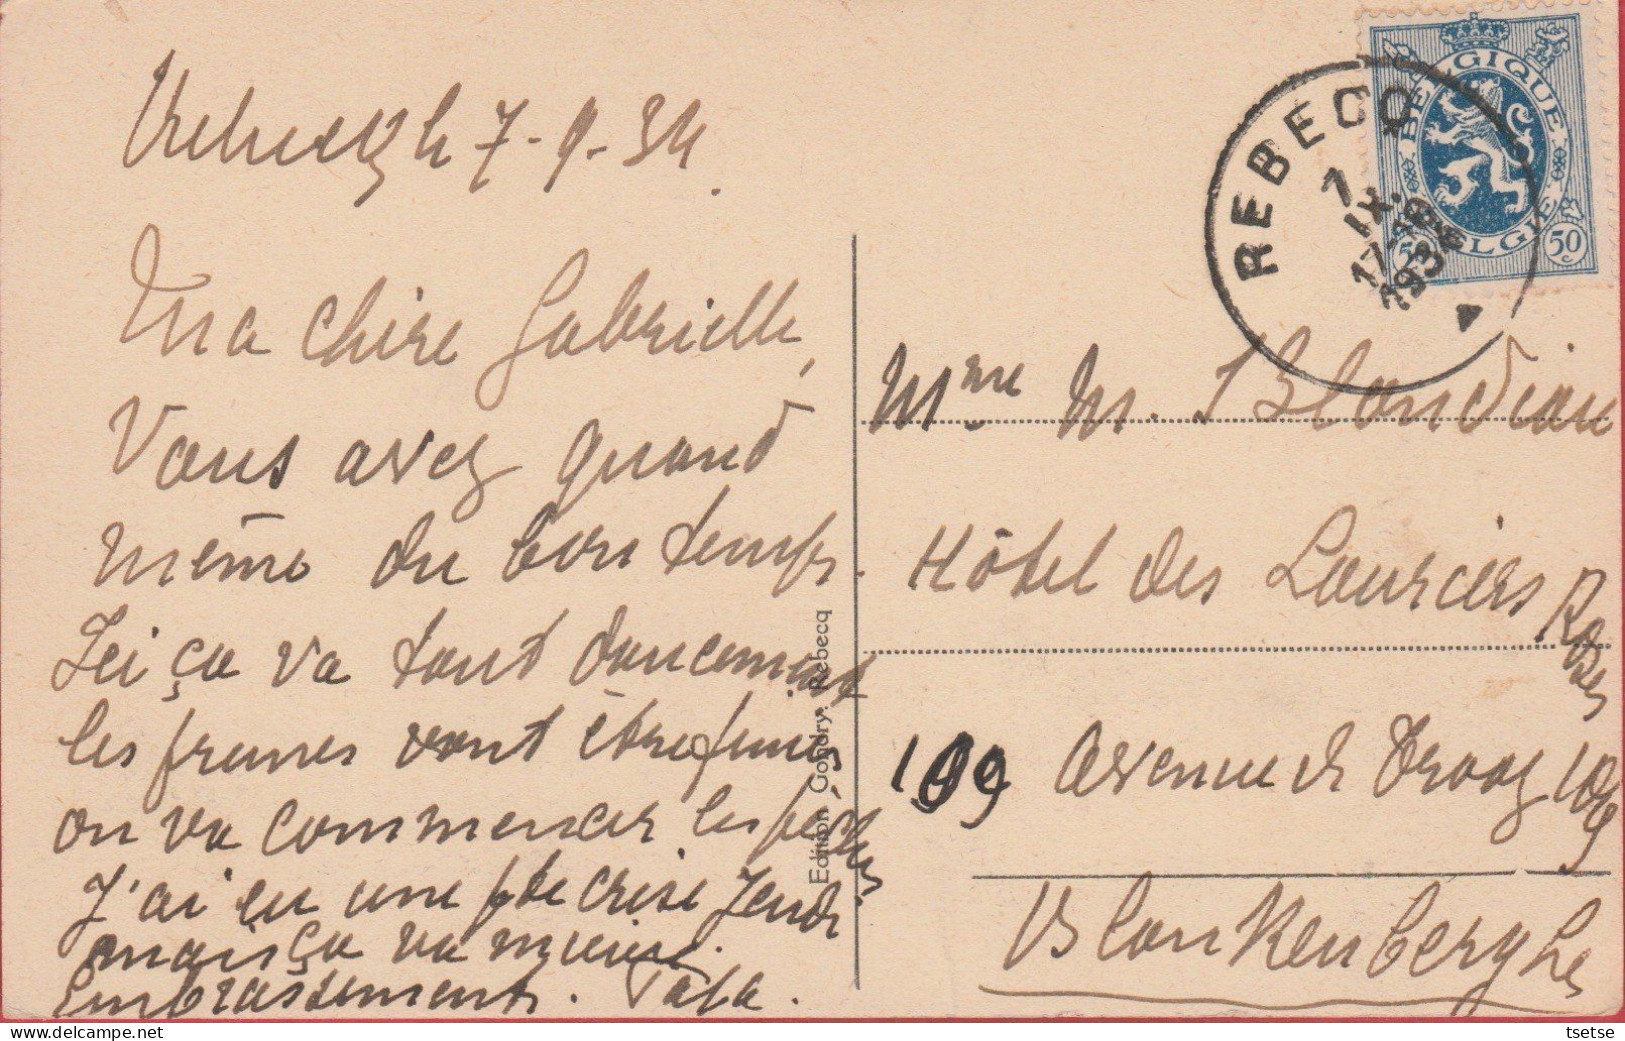 Rebecq le 7-9-34.
Ma chère Gabrielle,
Vous avez quand
même du bon temps.
Ici ça va tout doucement
les prunes vont être finies
on va commencer les pêches.
J'ai eu une pte crise Jeudi
mais ça va mieux.
Embrassements. Papa.
Edition Gondry. Rebecq
BELGIQUE
BELGIE
50 c
50
REBECQ
7
IX
17-18
1934
Mme M. Blondiau
Hôtel des Lauriers Roses
109 Avenue de Trooz 109
Blankenberghe
tsetse